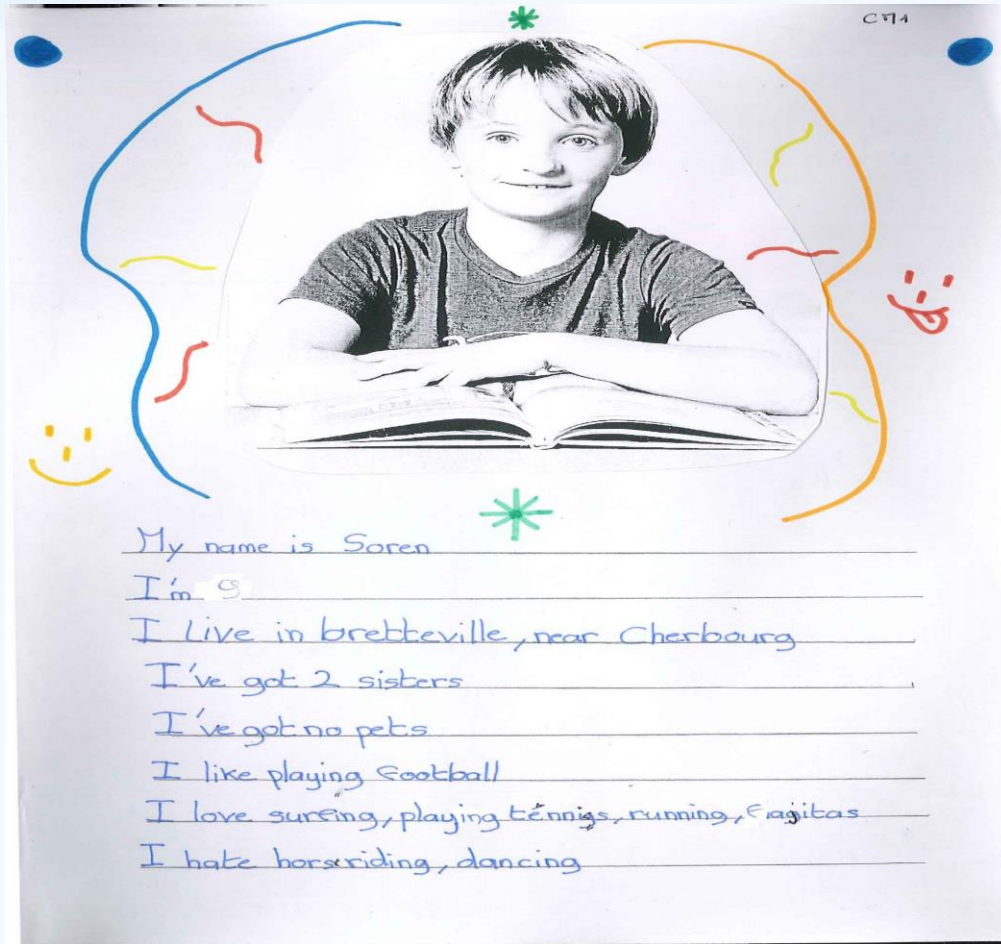 CM1
My name is Soren
I'm 9
I Live in bretteville, near Cherbourg
I've got 2 sisters
I've got no pets
I like playing football
I love surfing, playing ténnigs, running, fagitas
I hate horseriding, dancing